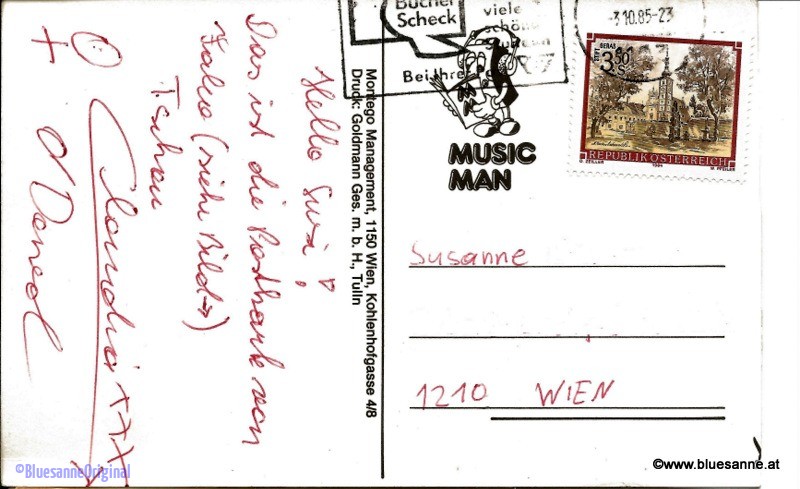 Hello Susi!
Das ist die Postkarte von
(siehe Bild →)
Tschau
Claudia xxx
Montego Management, 1150 Wien, Kohlenhofgasse 4/8
Druck: Goldmann Ges. m. b. H., Tulln
Bücher
Scheck
viele
schöne
Bei Ihre
-3.10.85-23
MUSIC
MAN
3.50
S
STIFT GERAS
REPUBLIK ÖSTERREICH
1984
Susanne
1210 WIEN
©BluesanneOriginal
©www.bluesanne.at